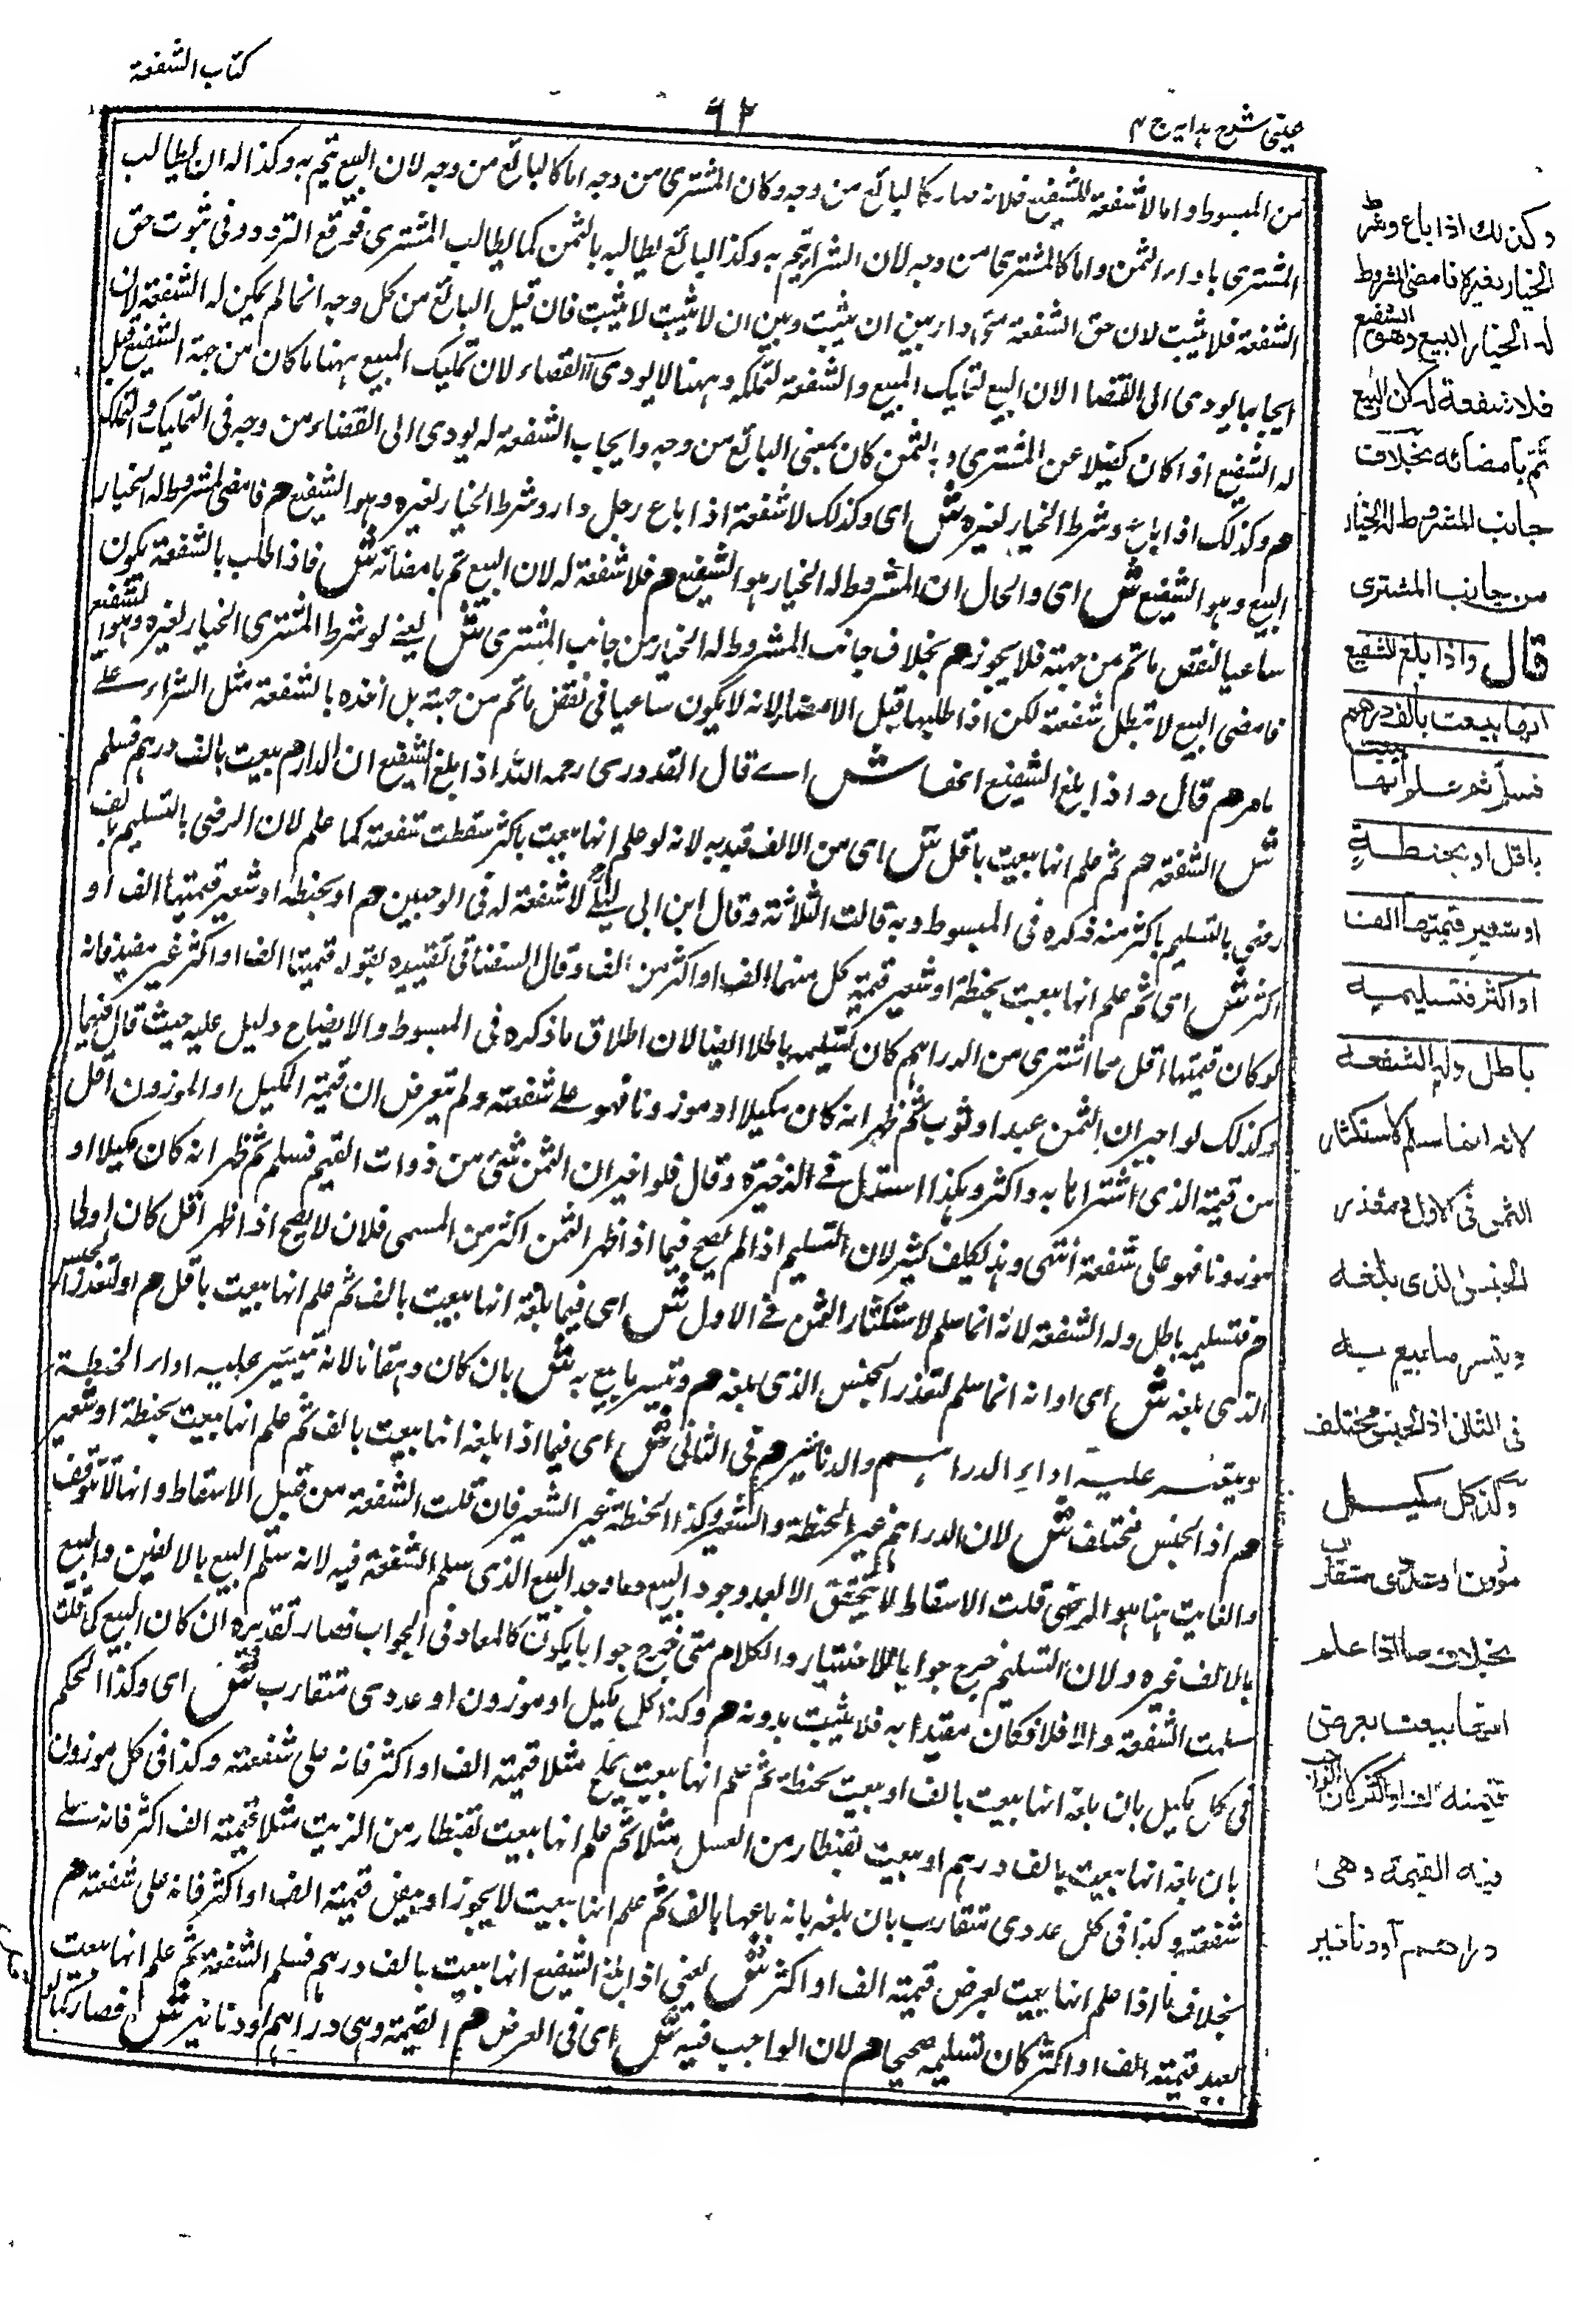 كتاب الشفعة
٩٢
عينى شرح هدايه ج ٣
من المبسوط واما لا شفعة للشفيع فلانه صار كالبائع من وجه وكان المشترى من وجه اما كالبائع من وجه لان البيع يتم به وكذا له ان يطالب
المشترى باداء الثمن واما كالمشترى من وجه لان الشراء يتم به وكذا البائع يطالبه بالثمن كما يطالب المشترى فوقع التردد فى ثبوت حق
الشفعة فلا يثبت لان حق الشفعة متى دار بين ان يثبت وبين ان لا يثبت لا يثبت فان قيل البائع من كل وجه انما لم يكن له الشفعة لان
ايجابها يودى الى القضاء لان البيع لتمليك المبيع والشفعة لتملكه وههنا لا يودى الى القضاء لان تمليك المبيع ههنا ما كان من جهة الشفيع قيل
له الشفيع اذا كان كفيلا عن المشترى بالثمن كان بمعنى البائع من وجه وايجاب الشفعة له يودى الى القضاء من وجه فى التمليك والتملك
هم وكذلك اذا باع وشرط الخيار لغيره ش اى وكذلك لا شفعة اذا باع رجل دار وشرط الخيار لغيره وهو الشفيع هم فامضى المشروط له الخيار
البيع وهو الشفيع ش اى والحال ان المشروط له الخيار هو الشفيع هم فلا شفعة له لان البيع تم بامضائه ش فاذا طلب بالشفعة يكون
ساعيا لنقض ما تم من جهته فلا يجوز هم بخلاف جانب المشروط له الخيار من جانب المشترى ش يعنى لو شرط المشترى الخيار لغيره وهو الشفيع
فامضى البيع لا تبطل شفعة لكن اذا طلبها قبل الامضاء لانه لا يكون ساعيا فى نقض ما تم من جهته بل اخذه بالشفعة مثل الشراء على
ما مر هم قال واذا بلغ الشفيع انها ش اى قال القدورى رحمه الله اذا بلغ الشفيع ان الدار هم بيعت بالف درهم فسلم
ش الشفعة هم ثم علم انها بيعت باقل ش اى من الالف قيد به لانه لو علم انها بيعت باكثر سقطت شفعته كما علم لان الرضى بالتسليم بالف
رضى بالتسليم باكثر منه ذكره فى المبسوط وبه قالت الثلاثة وقال ابن ابى ليلى لا شفعة له فى الوجهين هم او بحنطة او شعير قيمتها الف او
اكثر ش اى ثم علم انها بيعت بحنطة او شعير قيمة كل منهما الف او اكثر من الف وقال السغناقى تقييده بقوله قيمتها الف او اكثر غير مفيد فانه
لو كان قيمتها اقل مما اشترى من الدراهم كان تسليمه باطلا ايضا لان اطلاق ما ذكره فى المبسوط والايضاح دليل عليه حيث قال فيهما
وكذلك لو اخبر ان الثمن عبد او ثوب ثم ظهر انه كان مكيلا او موزونا فهو على شفعته ولم يتعرض ان قيمة المكيل او الموزون اقل
من قيمة الذى اشتراها به واكثر وهكذا استدل فى الذخيرة وقال فلو اخبر ان الثمن شئ من ذوات القيم فسلم ثم ظهر انه كان مكيلا او
موزونا فهو على شفعة انتهى وهذا تكلف كثير لان التسليم اذا لم يصح فيما اذا ظهر الثمن اكثر من المسمى فلان لا يصح اذا ظهر اقل كان اولى
هم فتسليمه باطل وله الشفعة لانه انما سلم لاستكثار الثمن فى الاول ش اى فيما بلغه انها بيعت بالف ثم علم انها بيعت باقل هم او لتعذر الجنس
الذى بلغه ش اى او انه انما سلم لتعذر الجنس الذى بلغه هم وتيسر ما بيع به ش بان كان دهقانا لانه تيسر عليه اداء الحنطة
ويتعسر عليه اداء الدراهم والدنانير هم فى الثانى ش اى فيما اذا بلغه انها بيعت بالف ثم علم انها بيعت بحنطة او شعير
هم اذ الجنس مختلف ش لان الدراهم غير الحنطة والشعير وكذا الحنطة غير الشعير فان قلت الشفعة من قبيل الاسقاط وانها لا تتوقف
والغايت ههنا هو الرضى قلت الاسقاط لا يتحقق الا بعد وجود البيع وما وجد البيع الذى سلم الشفعة فيه لانه سلم البيع بالالفين والبيع
بالالف غيره ولان التسليم خرج جوابا للاخبار والكلام متى خرج جوابا يكون كالمعاد فى الجواب فصار تقديره ان كان البيع كما قلت
سلمت الشفعة والا فلا فكان مقيدا به فلا يثبت بدونه هم وكذا كل مكيل او موزون او عددى متقارب ش اى وكذا الحكم
فى كل مكيل بان بلغه انها بيعت بالف او بيعت بحنطة ثم علم انها بيعت بملح مثلا قيمته الف او اكثر فانه على شفعته وكذا فى كل موزون
بان بلغه انها بيعت بالف درهم او بيعت بقنطار من العسل مثلا ثم علم انها بيعت بقنطار من الزيت مثلا قيمته الف اكثر فانه على
شفعته وكذا فى كل عددى متقارب بان بلغه بانه باعها بالف ثم علم انها بيعت لا يجوز او بيض قيمته الف او اكثر فانه على شفعته هم
بخلاف ما اذا علم انها بيعت بعرض قيمته الف او اكثر ش يعنى اذا بلغ الشفيع انها بيعت بالف درهم فسلم الشفعة ثم علم انها بيعت
بعبد قيمته الف او اكثر كان تسليمه صحيحا هم لان الواجب فيه ش اى فى العرض هم القيمة وهى دراهم او دنانير ش فصار كما لو
وكذلك اذا باع وشرط
الخيار لغيره فامضى المشروط
له الخيار البيع وهو الشفيع
فلا شفعة له لان البيع
تم بامضائه بخلاف
جانب المشروط له الخيار
من جانب المشترى
قال واذا بلغ الشفيع
انها بيعت بالف درهم
فسلم ثم علم انها بيعت
باقل او بحنطة
او شعير قيمتها الف
او اكثر فتسليمه
باطل وله الشفعة
لانه انما سلم لاستكثار
الثمن فى الاول ولتعذر
الجنس الذى بلغه
وتيسر ما بيع به
فى الثانى اذ الجنس مختلف
وكذا كل مكيل
موزون او عددى متقارب
بخلاف ما اذا علم
انها بيعت بعرض
قيمته الف او اكثر لان الواجب
فيه القيمة وهى
دراهم او دنانير